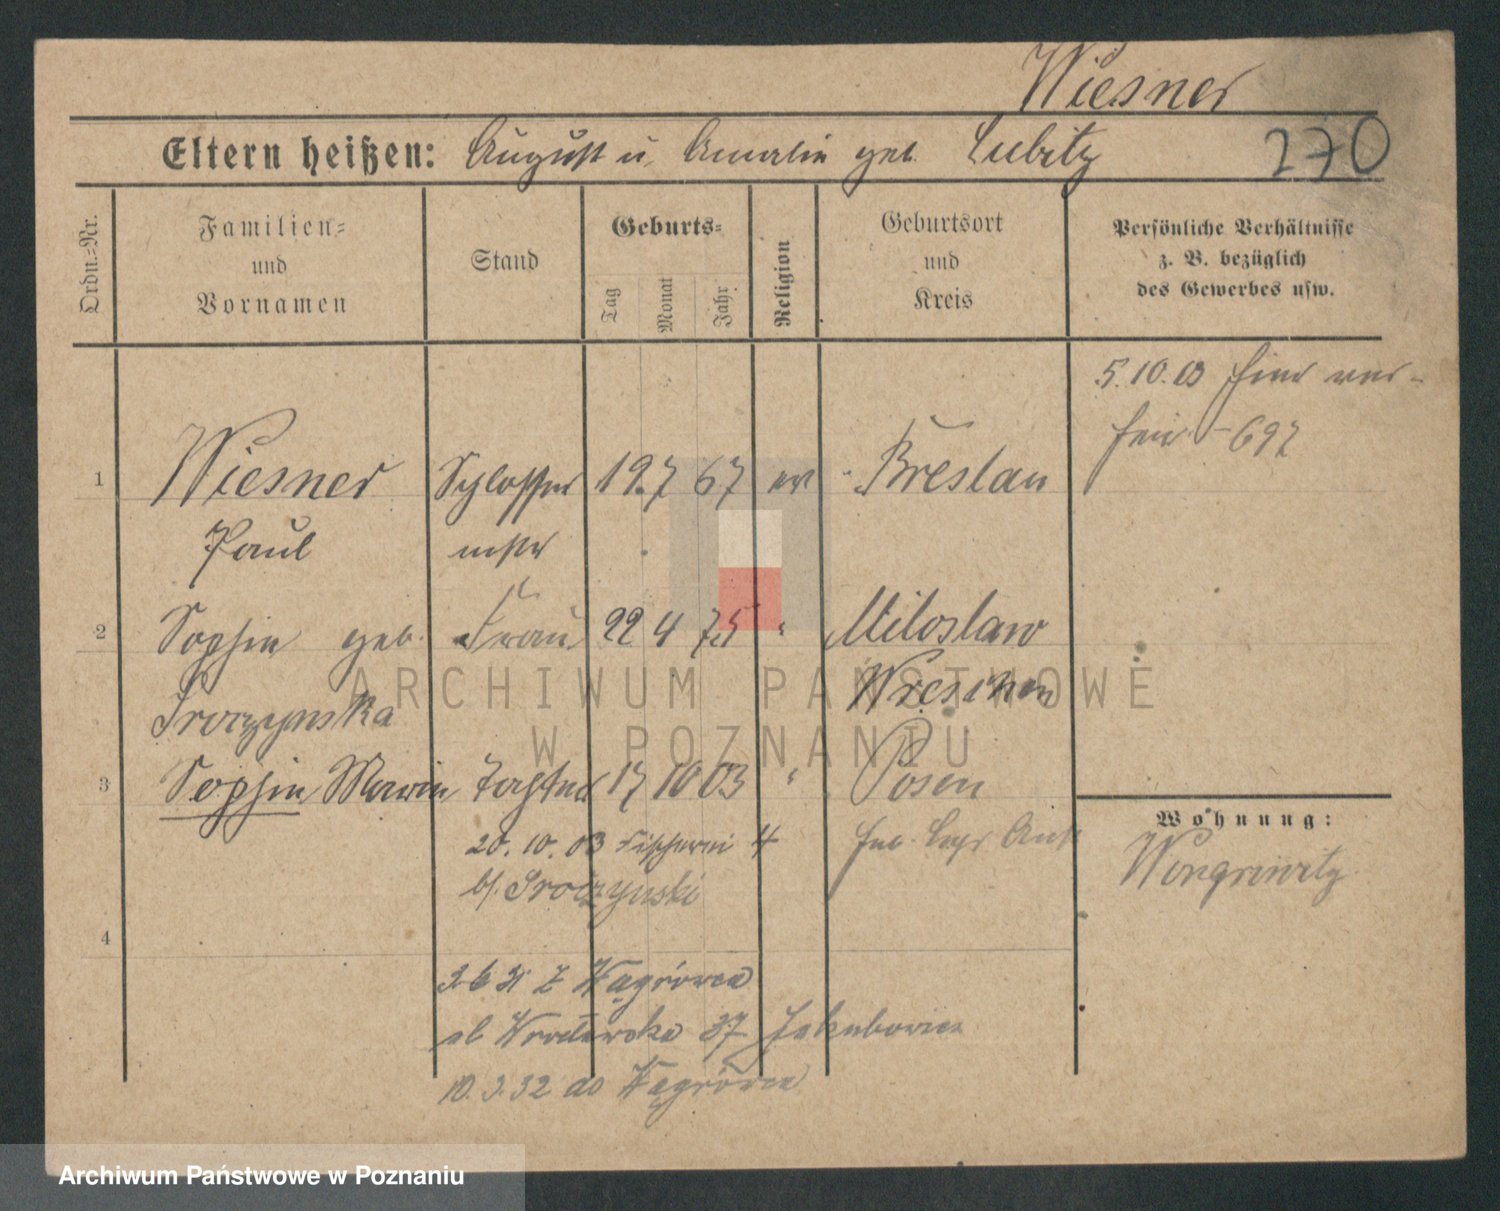 Wiesner
Eltern heißen: August u. Amalie geb. Lubitz 270
Ordn.=Nr.
Familien=
und
Vornamen
Stand
Geburts=
Tag
Monat
Jahr
Religion
Geburtsort
und
Kreis
Persönliche Verhältnisse
z. B. bezüglich
des Gewerbes usw.
5.10.03
697
1 Wiesner Schlosser 19 7 67 ev Breslau
Paul mstr
2 Sophie geb. Frau 22 4 75 " Miloslaw
Sroczynska Wreschen
3 Sophie Marie Tochter 17 10 03 " Posen
20. 10. 03 Fischerei 4
b/. Sroczynski
Wohnung:
Wongrowitz
4
31 z Wągrówca
ul Wrocławska 37 Jakubowicz
10.3.32 do Wągrówca
ARCHIWUM PAŃSTWOWE
W POZNANIU
Archiwum Państwowe w Poznaniu